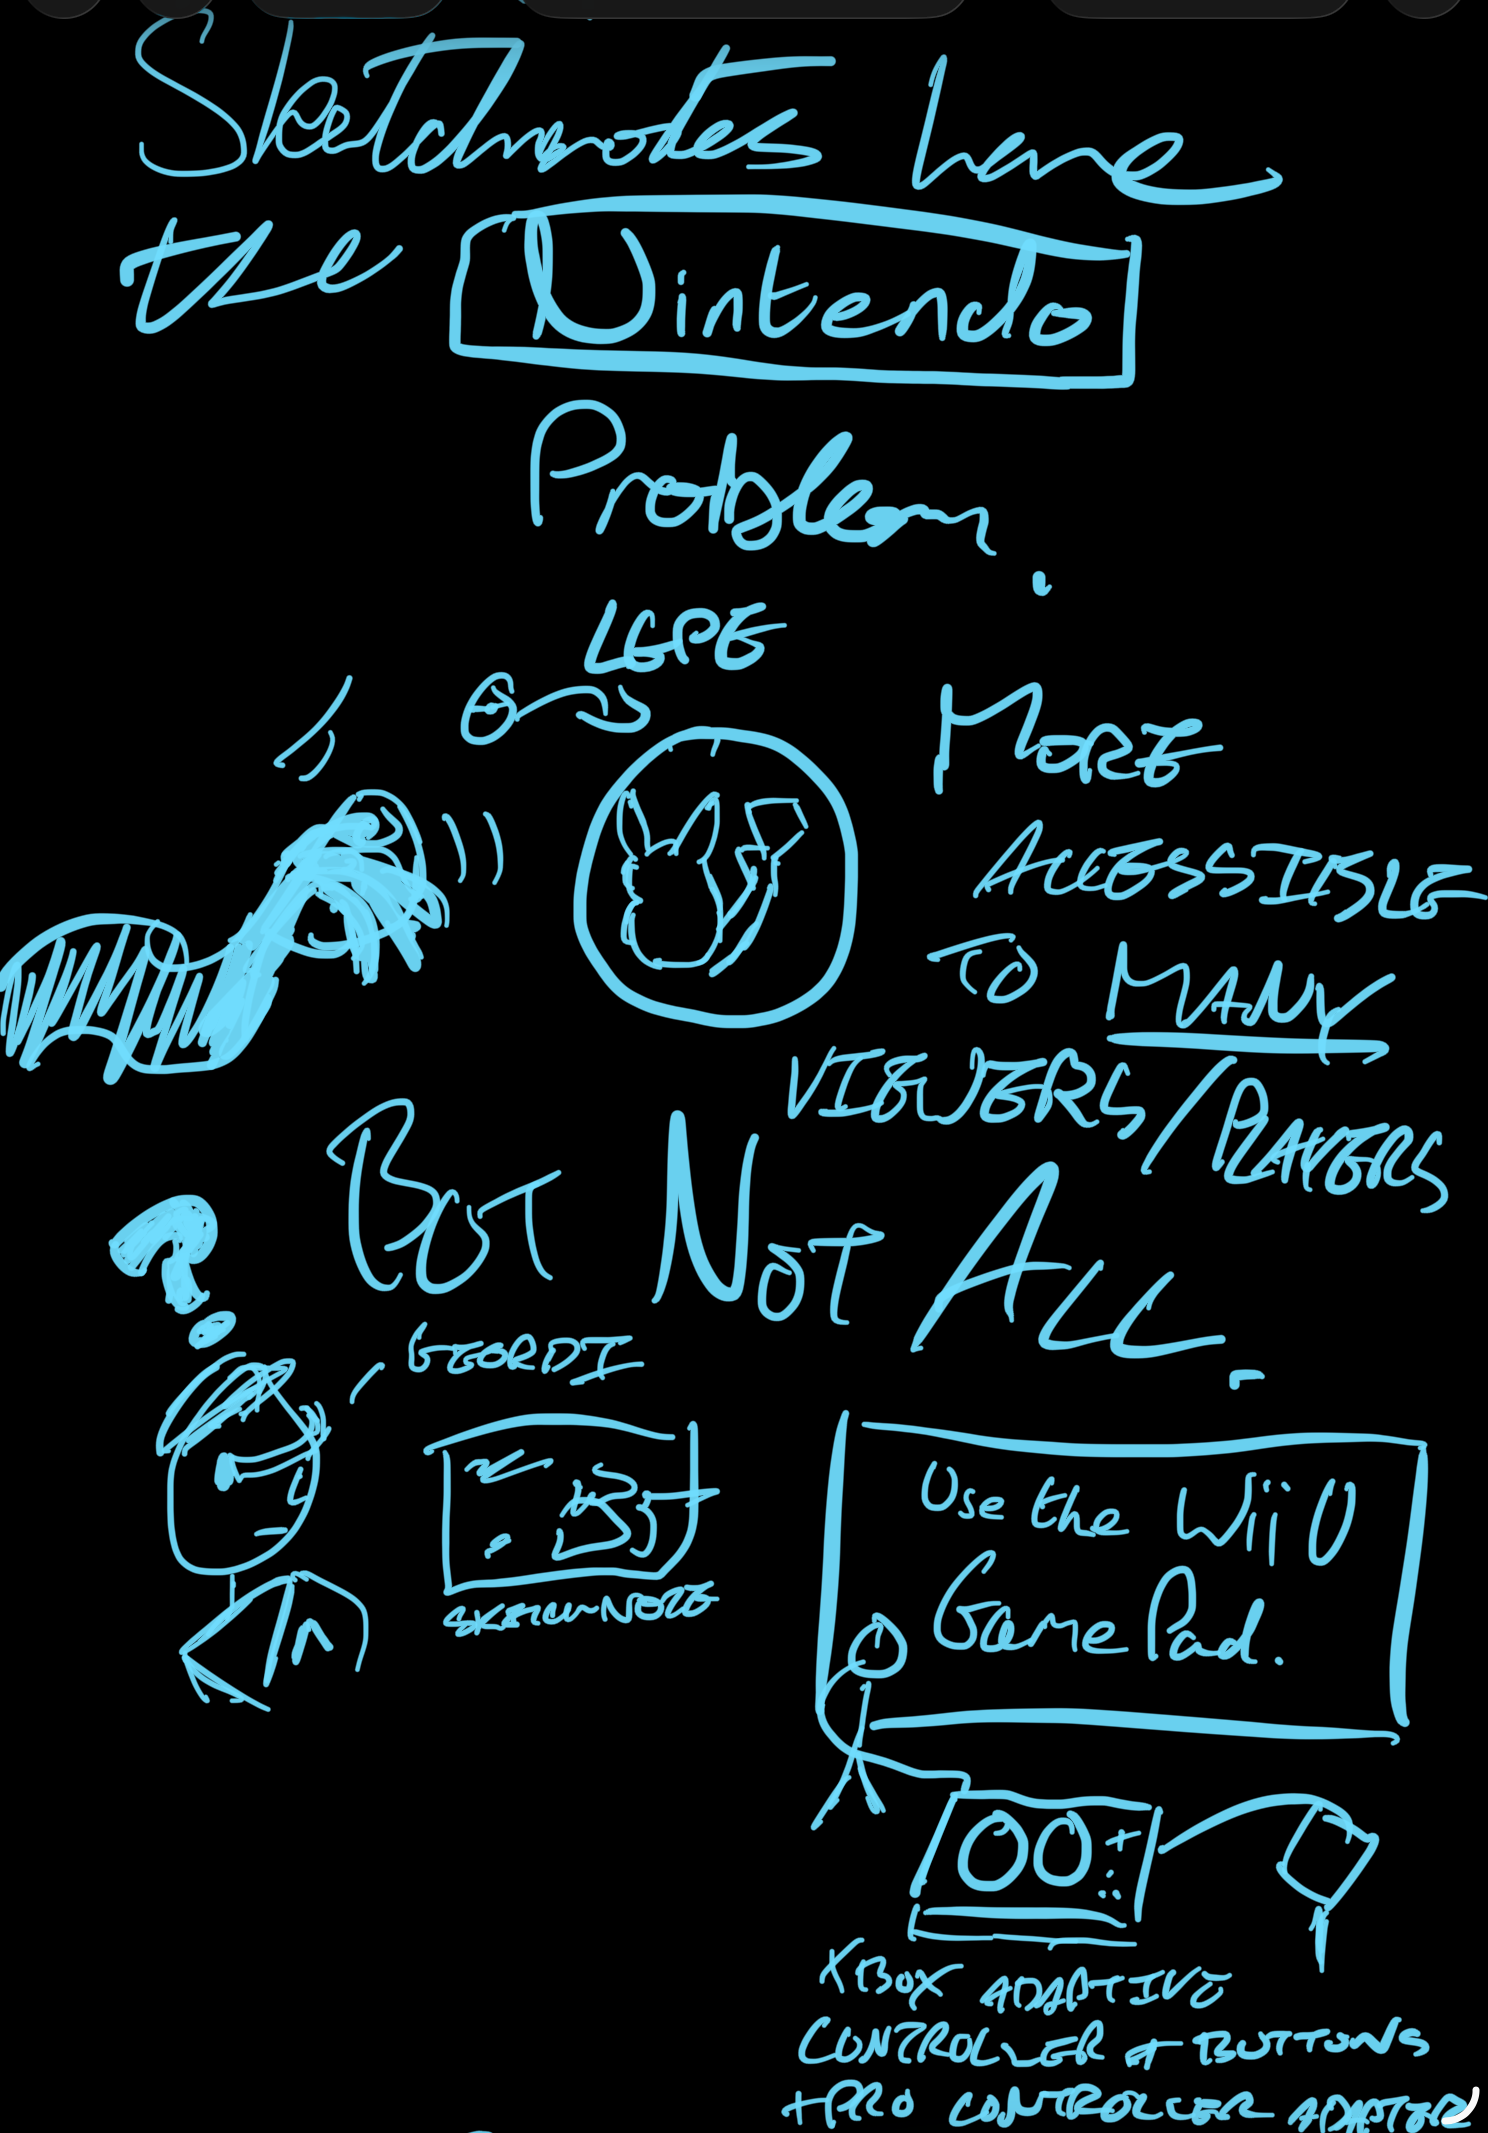 Sketchnotes have
the Nintendo
Problem.
LGPE
MORE
ACCESSIBLE
TO MANY
VIEWERS/PLAYERS
BUT NOT ALL.
?
GEORDI
SKETCHNOTE
Use the Wii U
GamePad.
XBOX ADAPTIVE
CONTROLLER + BUTTONS
+PRO CONTROLLER ADAPTER